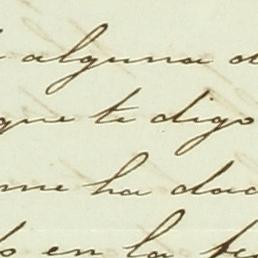 alguna
que te digo
me ha dad
en la